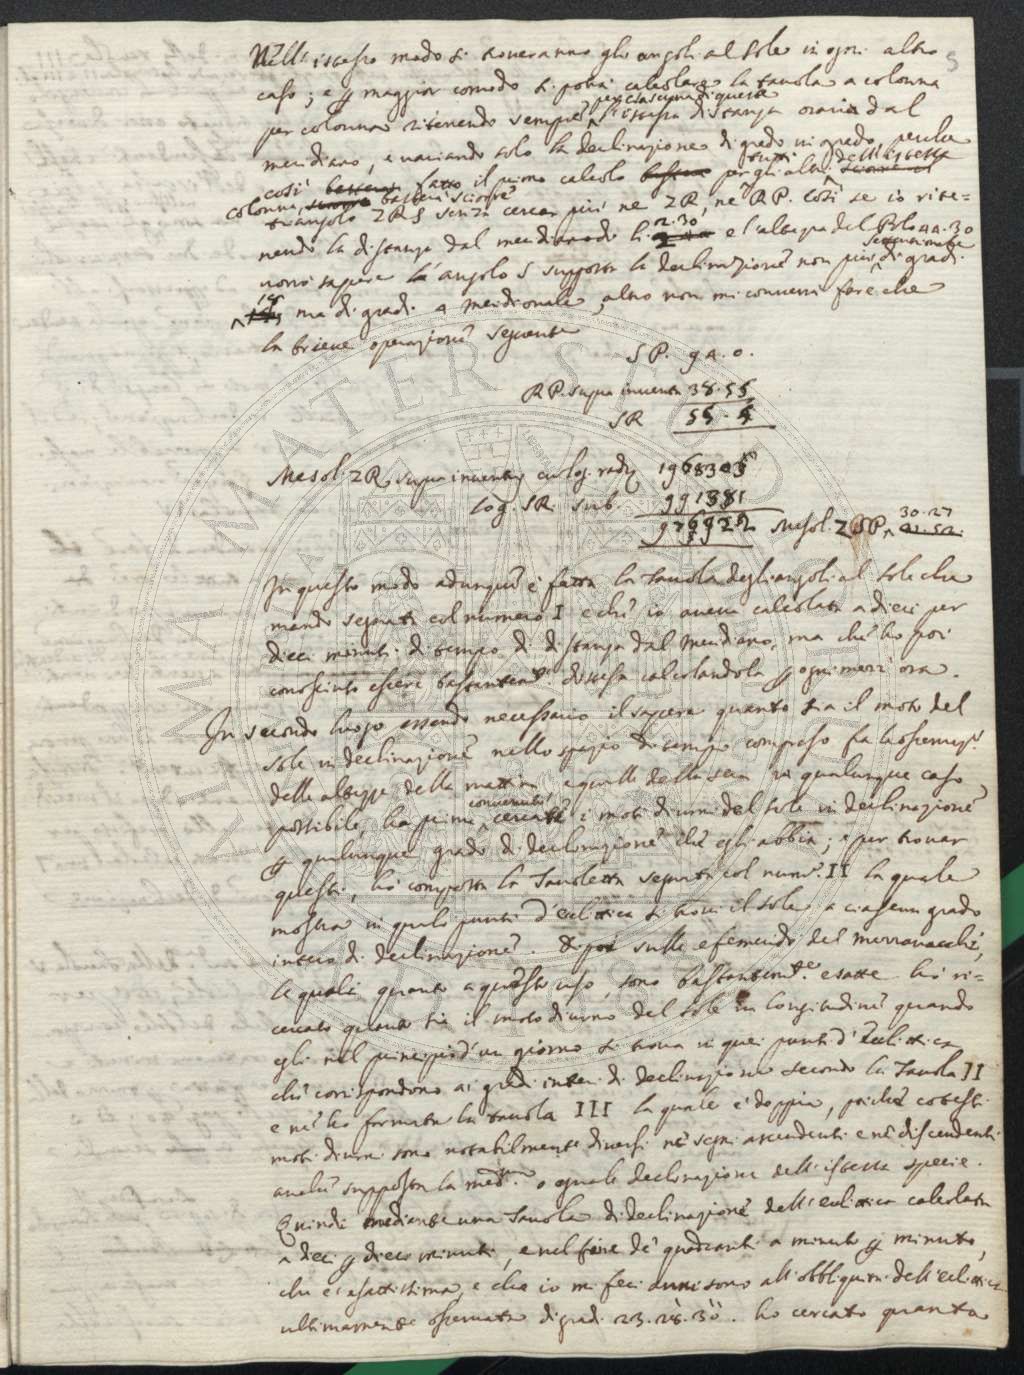 5
Nell'istesso modo si troveranno gli angoli al Sole in ogni altro
caso; e p maggior comodo si potrà calcolare la tavola a colonna
per colonna ritenendo sempre per ciascuna di queste l'istessa distanza oraria dal
meridiano, e variando solo la declinazione di grado in grado, perche
così fatto il primo calcolo per gli altri tutti dell'istessa
colonna, basterà sciorre
triangolo ZRS senza cercar più ne ZR, ne RP. Così se io rite=
nendo la distanza dal meridiano di h. 2.30 e l'altezza del Polo 44.30
vorrò sapere l'angolo S supposta la declinazione non più settentrionale di gradi
18 ma di gradi 4 meridionale, altro non mi converrà fare che
la brieve operazione seguente
SP. 94.0.
RP. supra inventa 38.55
SR 55.5
Mesol. ZR, supra inventa cu log. rady 1968305
Log. SR sub. 991381
976922 Mesol. ZSP, 30.27
In questo modo adunque è fatta la Tavola degli angoli al Sole che
mando segnata col numero I e che io aveva calcolata a dieci per
dieci minuti di tempo di distanza dal Meridiano, ma che ho poi
conosciuto essere bastantem.te distesa calcolandola p ogni mezz'ora.
In secondo luogo essendo necessario il sapere quanto sia il moto del
Sole in declinazione nello spazio di tempo compreso fra le osservaz.i
delle altezze della mattina e quelle della sera in qualunque caso
possibile, ho prima convenuto cercare i moti diurni del Sole in declinazione
p qualunque grado di declinazione che egli abbia; e per trovar
questi, ho composta la Tavoletta segnata col num.o II la quale
mostra in quali punti d'eclittica si trovi il Sole a ciascun grado
intero di declinazione. Di poi sulle efemeridi del Mezzavacchi,
le quali quanto a questo uso, sono bastantem.te esatte ho ri=
cercato quanto sia il moto diurno del Sole in longitudine quando
egli nel principio d'un giorno si trova in quei punti d'Eclittica
che corrispondono ai gradi interi di declinazione secondo la Tavola II
e ne ho formata la tavola III la quale è doppia, poiche cotesti
moti diurni sono notabilmente diversi ne segni ascendenti e ne discendenti
anche supposta la med.ma o eguale declinazione dell'istessa specie.
Quindi mediante una Tavola di declinazione dell'eclittica calcolata
a dieci p dieci minuti, e nel fine de' quadranti a minuto p minuto,
che è esattissima, e che io mi feci anni sono all'obbliquità dell'eclittica
ultimamente osservata di gradi 23.28.30. ho cercato quanto